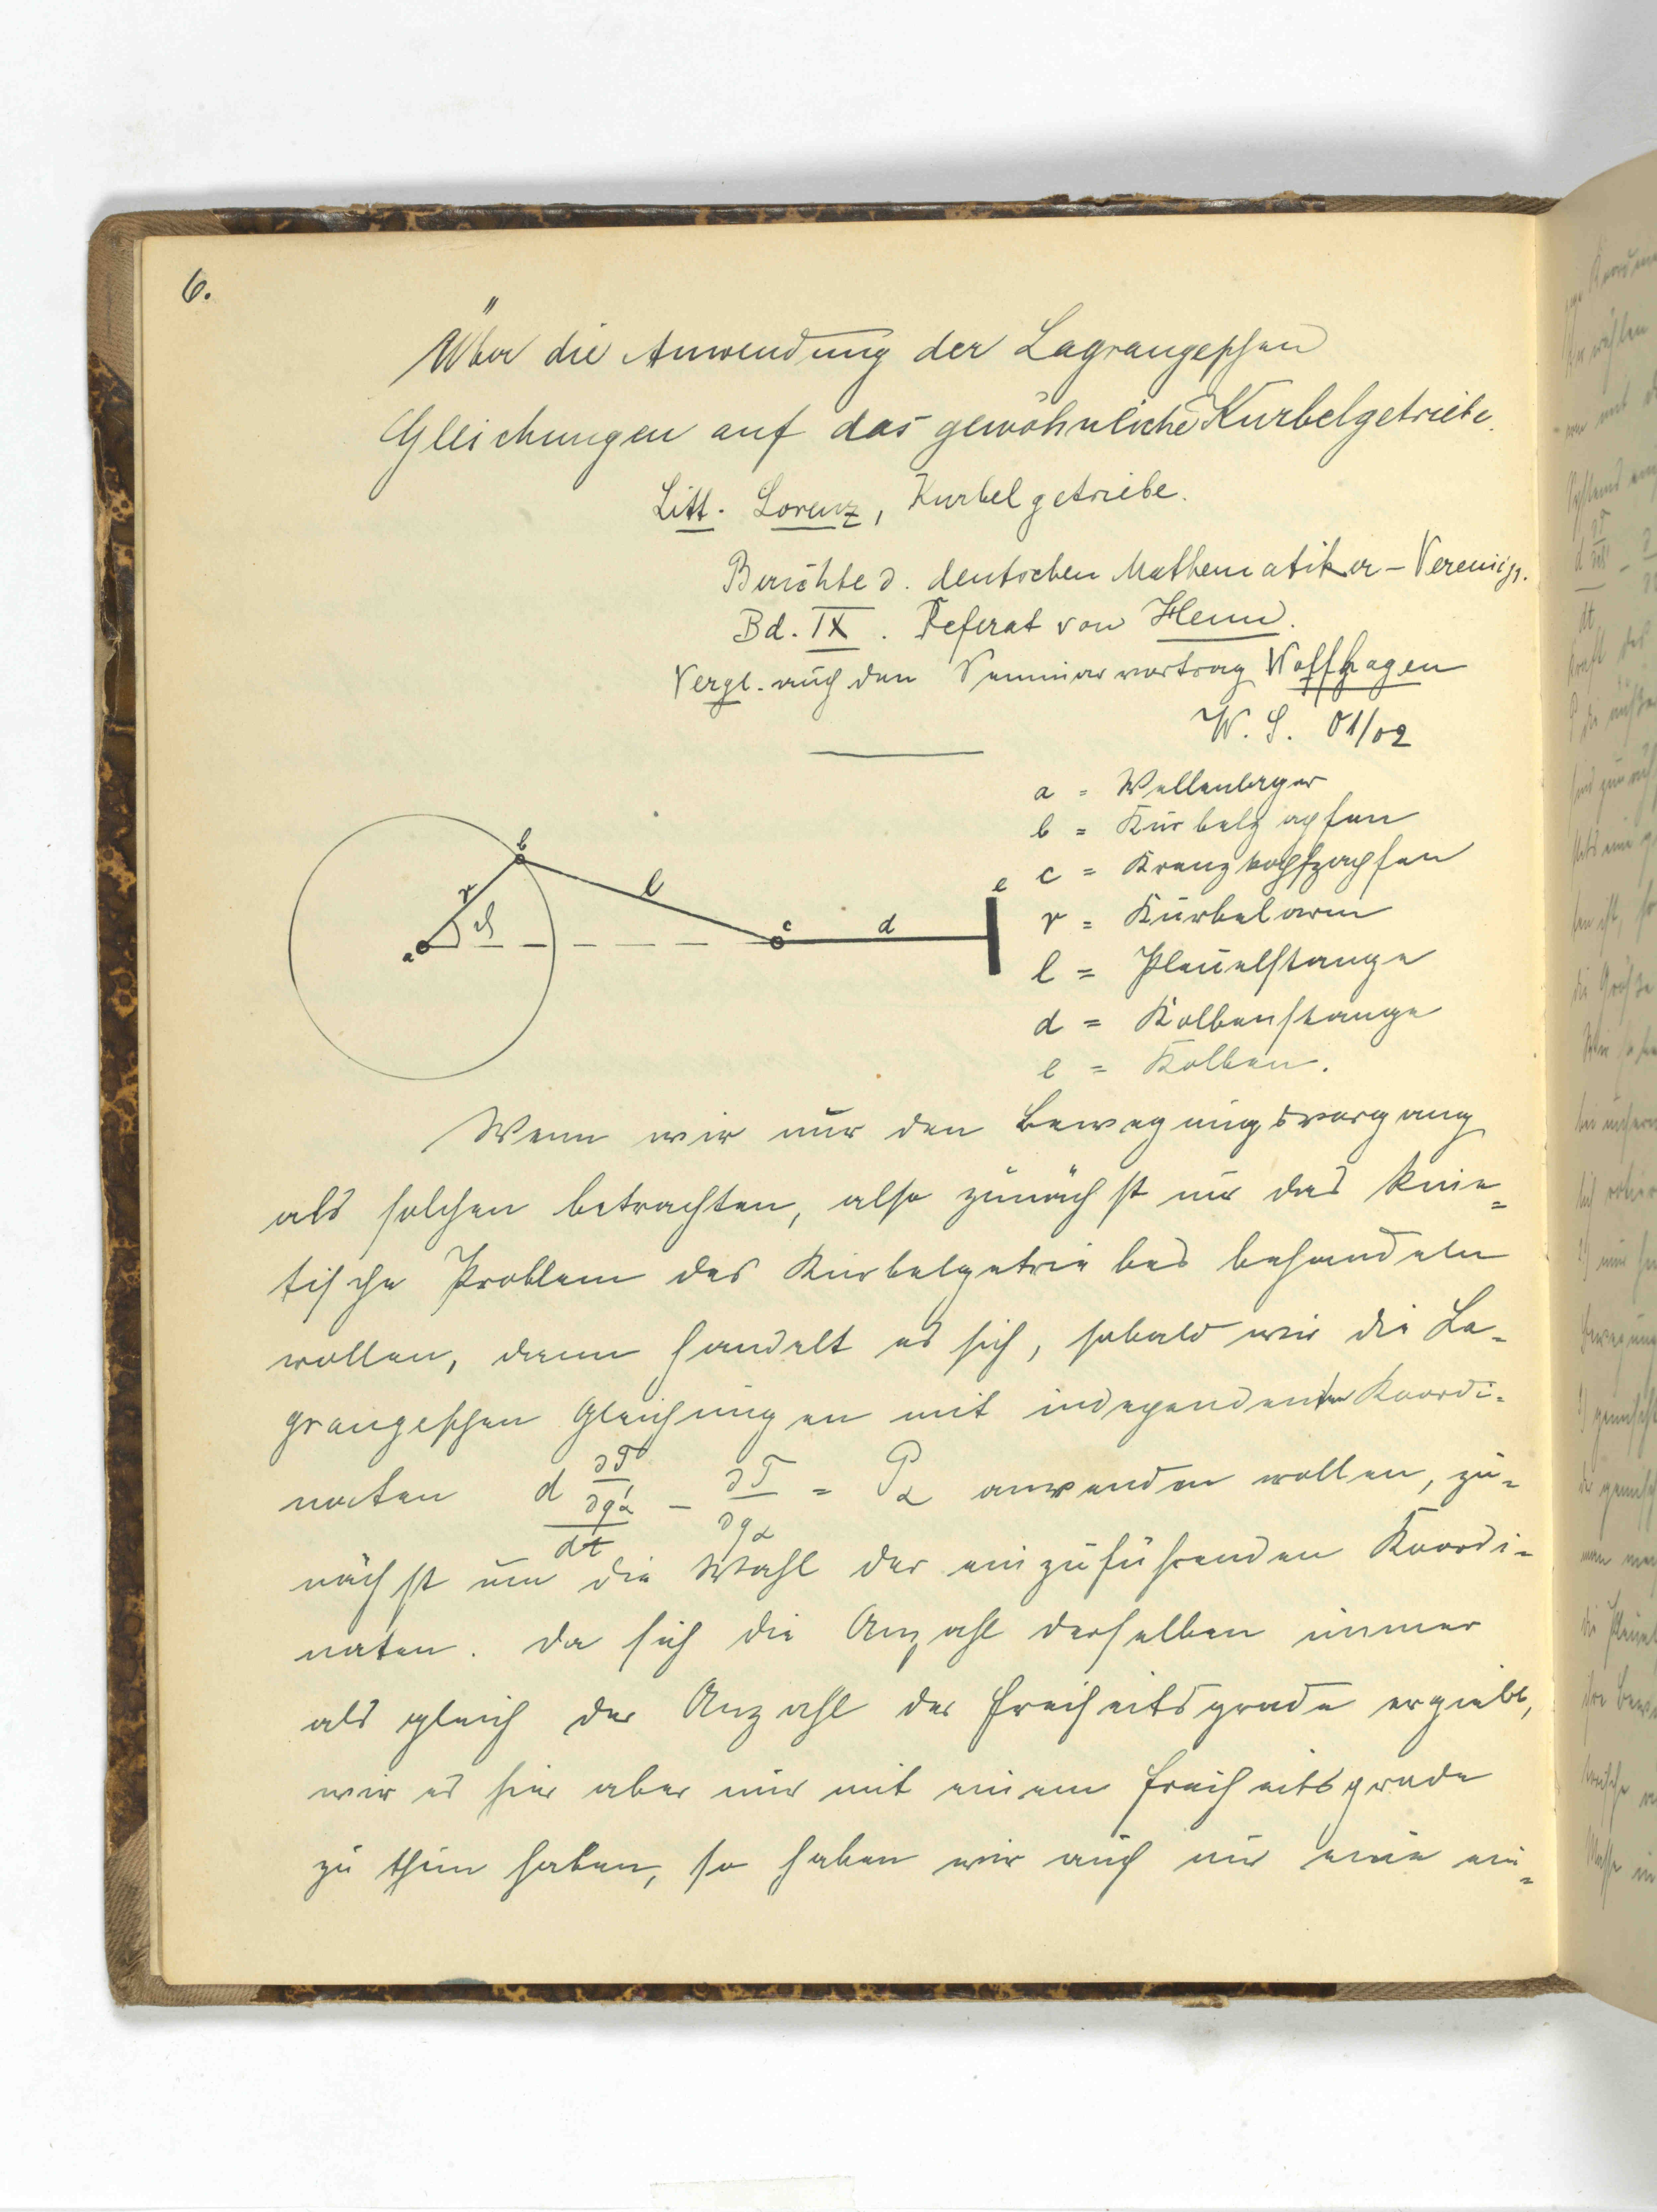 6.
Über die Anwendung der Lagrangeschen
Gleichungen auf das gewöhnliche Kurbelgetriebe.
Litt. Lorenz, Kurbelgetriebe.
Berichte d. deutschen Mathematiker-Vereinig.
Bd. IX. Referat von Heun.
Vergl. auch den Seminarvortrag Noffhagen
W. S. 01/02
a = Wellenlager
b = Kurbelzapfen
c = Kreuzkopfzapfen
r = Kurbelarm
l = Pleuelstange
d = Kolbenstange
e = Kolben.
a r ϑ b l c d e
Wenn wir nur den Bewegungsvorgang
als solchen betrachten, also zunächst nur das kine=
tische Problem des Kurbelgetriebes behandeln
wollen, dann handelt es sich, sobald wir die La-
grangeschen Gleichungen mit independenten Koordi-
naten d ∂T/∂q'α / dt - ∂T/∂qα = Pα anwenden wollen, zu-
nächst um die Wahl der einzuführenden Koordi-
naten. Da sich die Anzahl derselben immer
als gleich der Anzahl der Freiheitsgrade ergiebt,
wir es hier aber nur mit einem Freiheitsgrade
zu thun haben, so haben wir auch nur eine ein=